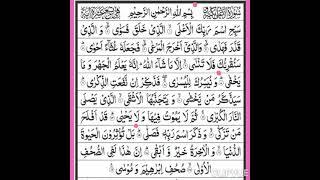 بِسْمِ اللهِ الرَّحْمٰنِ الرَّحِيْمِ
سَبِّحِ اسْمَ رَبِّكَ الْاَعْلَى ۝ الَّذِيْ خَلَقَ فَسَوّٰى ۝ وَالَّذِيْ
قَدَّرَ فَهَدٰى ۝ وَالَّذِيْٓ اَخْرَجَ الْمَرْعٰى ۝ فَجَعَلَهٗ غُثَآءً اَحْوٰى ۝
سَنُقْرِئُكَ فَلَا تَنْسٰٓى ۝ اِلَّا مَا شَآءَ اللهُ اِنَّهٗ يَعْلَمُ الْجَهْرَ وَمَا
يَخْفٰى ۝ وَنُيَسِّرُكَ لِلْيُسْرٰى ۝ فَذَكِّرْ اِنْ نَّفَعَتِ الذِّكْرٰى ۝
سَيَذَّكَّرُ مَنْ يَّخْشٰى ۝ وَيَتَجَنَّبُهَا الْاَشْقَى ۝ الَّذِيْ يَصْلَى
النَّارَ الْكُبْرٰى ۝ ثُمَّ لَا يَمُوْتُ فِيْهَا وَلَا يَحْيٰى ۝ قَدْ اَفْلَحَ
مَنْ تَزَكّٰى ۝ وَذَكَرَ اسْمَ رَبِّهٖ فَصَلّٰى ۝ بَلْ تُؤْثِرُوْنَ الْحَيٰوةَ
الدُّنْيَا ۝ وَالْاٰخِرَةُ خَيْرٌ وَّاَبْقٰى ۝ اِنَّ هٰذَا لَفِي الصُّحُفِ
الْاُوْلٰى ۝ صُحُفِ اِبْرٰهِيْمَ وَمُوْسٰى ۝